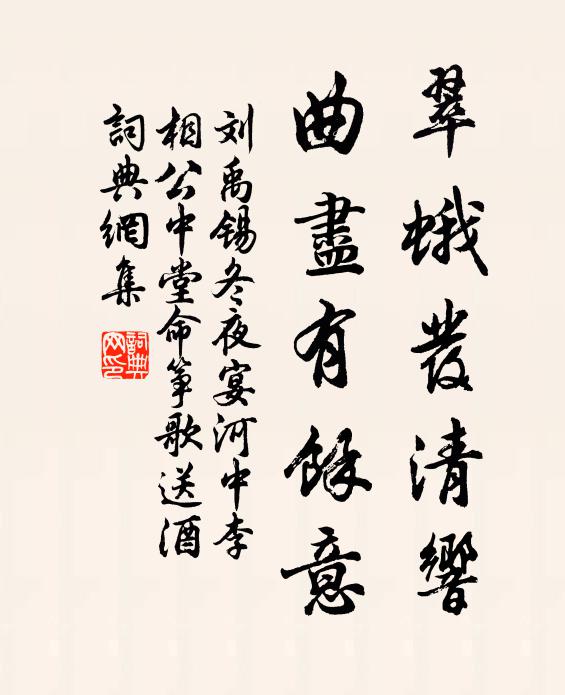 翠蛾發清響
曲盡有餘意
刘禹锡冬夜宴河中李
相公中堂命筝歌送酒
詞典網集
詞典
网印